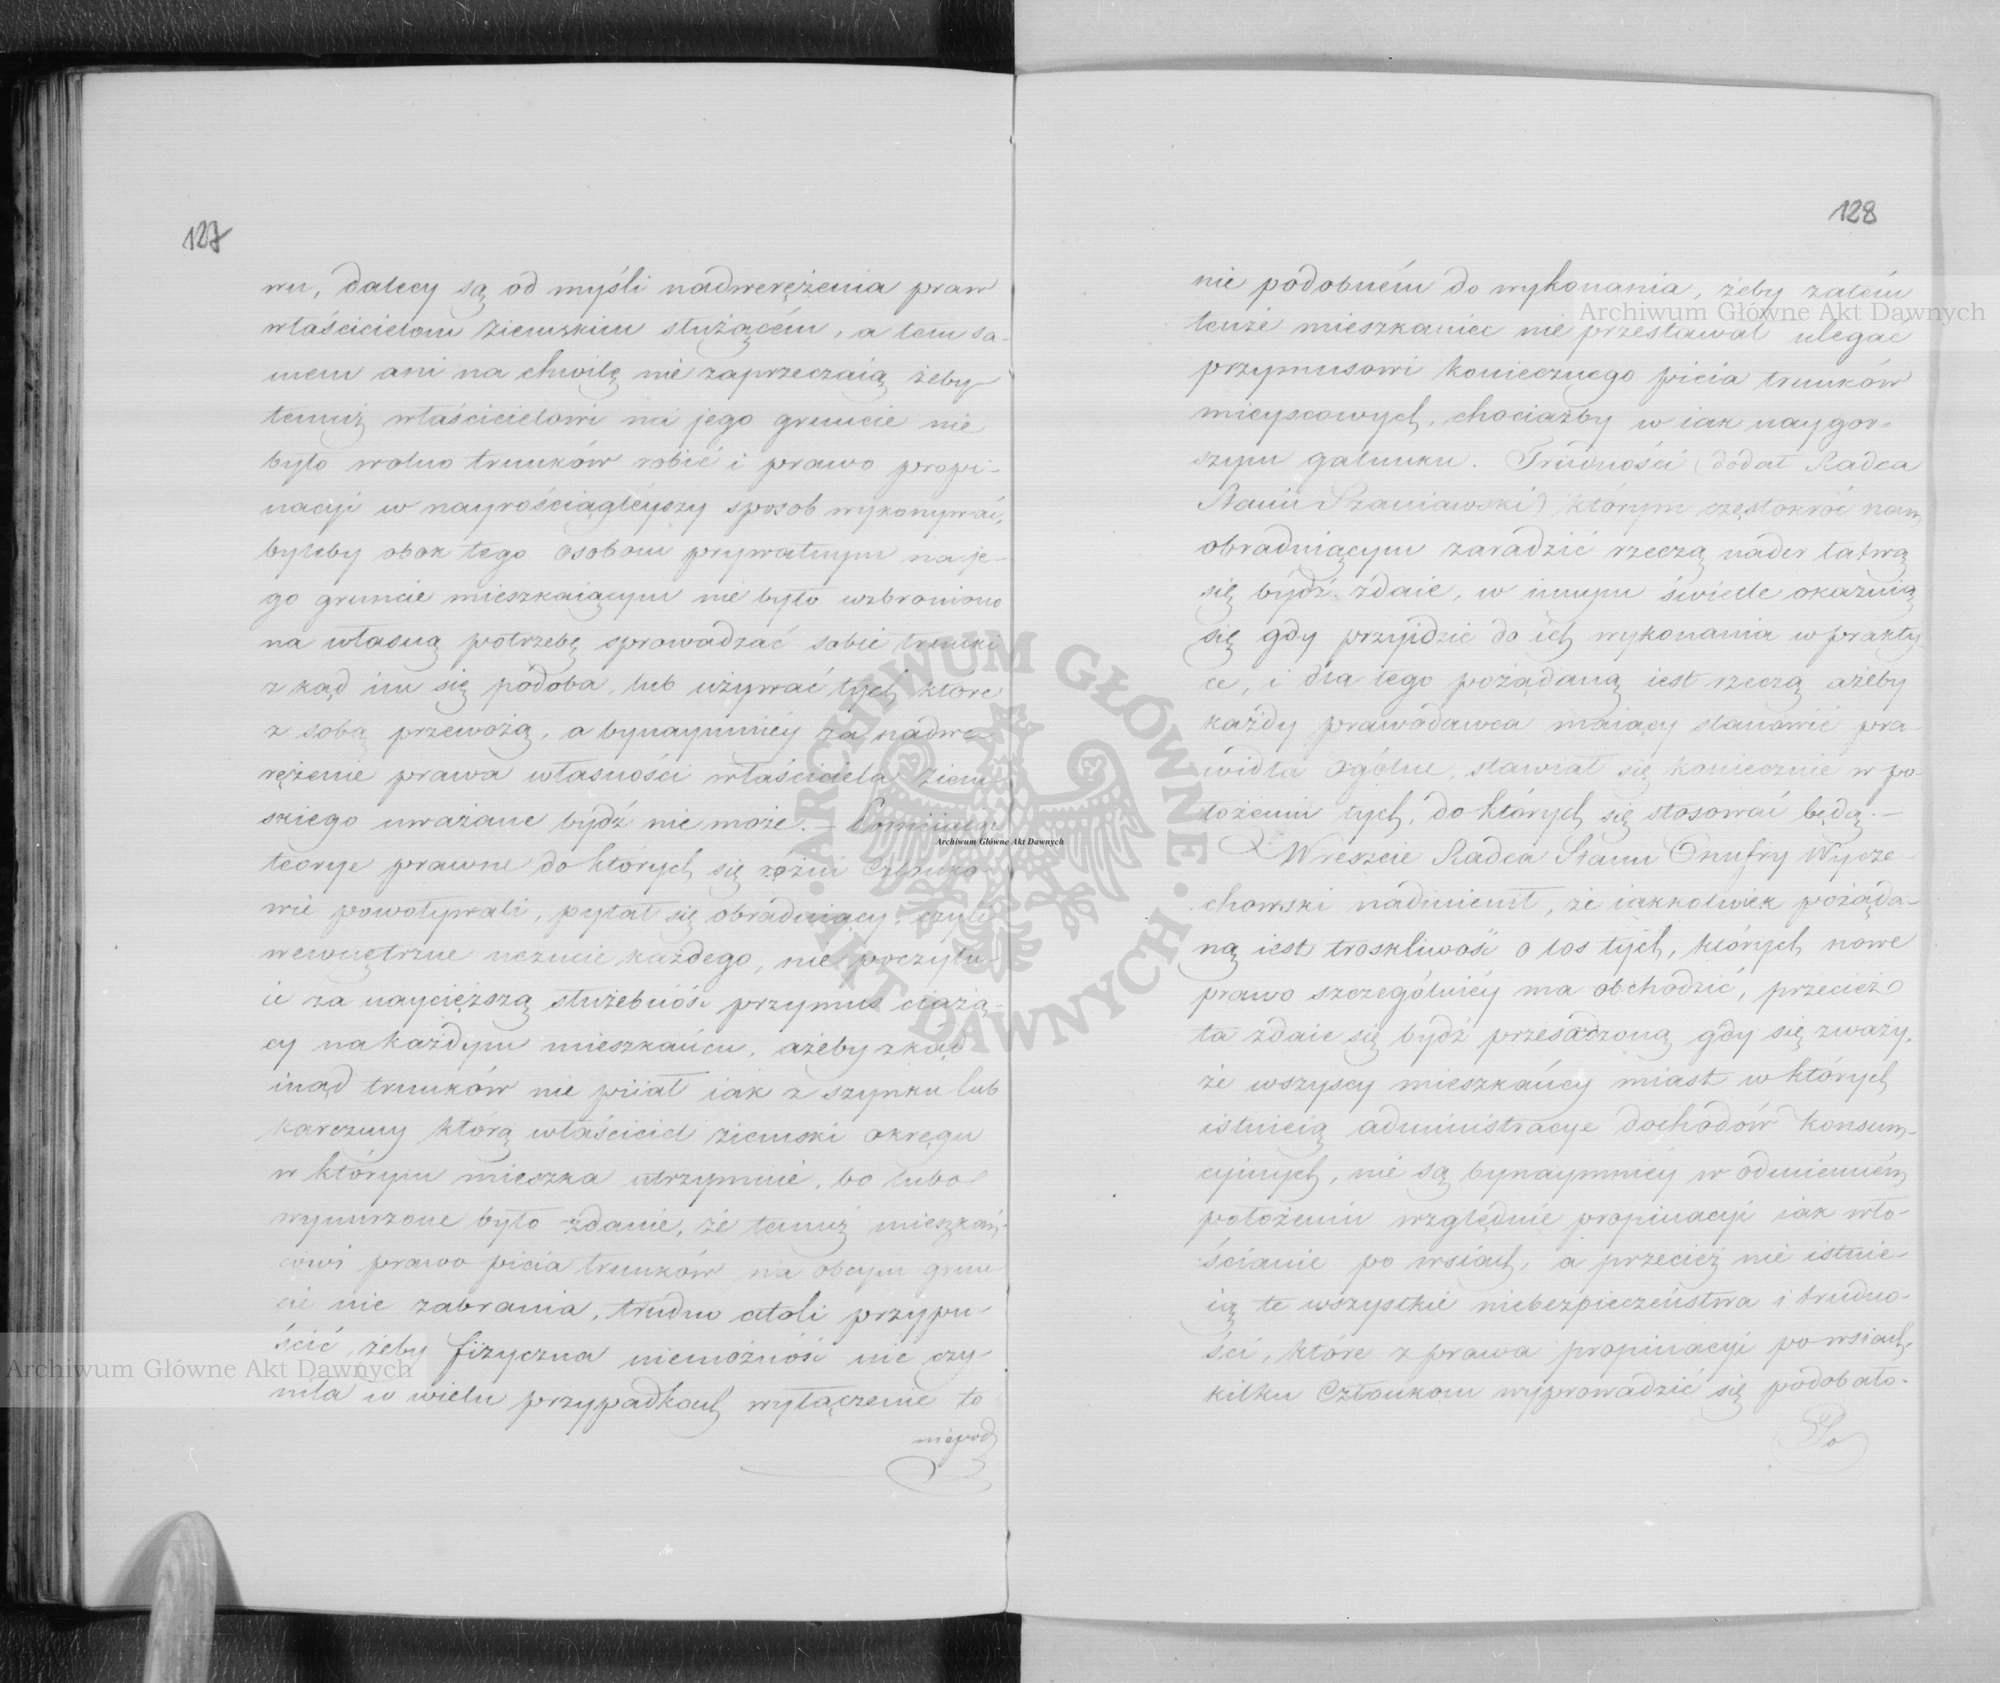 127
wu, dalecy są od myśli nadwerężenia praw
właścicielom ziemskim służącém, a tem sa-
mem ani na chwilę nie zaprzeczaią żeby
temuż właścicielowi na jego gruncie nie
było wolno trunków robić i prawo propi-
nacyi w nayrościągléyszy sposób wykonywać,
byleby obok tego osobom prywatnym na je-
go gruncie mieszkaiącym nie było wzbroniono
na własną potrzebę sprowadzać sobie trunki
z kąd im się podoba, lub używać tych które
z sobą przewożą, a bynaymniéy za nadwe-
rężenie prawa własności właściciela ziem-
skiego uważane bydź nie może. – Pomiiaiąc
teorye prawne do których się różni Członko-
wie powoływali, pytał się obraduiący: czyli
wewnętrzne uczucie każdego, nie poczytu-
ie za naycięższą służebność przymus ciążą-
cy na każdym mieszkańcu, ażeby zkąd
inąd trunków nie piiał iak z szynku lub
karczmy którą właściciel ziemski okręgu
w którym mieszka utrzymuie, bo lubo
wynurzone było zdanie, że temuż mieszkań-
cowi prawo picia trunków na obcym grun-
cie nie zabrania, trudno atoli przypu-
ścić, żeby fizyczna niemożność nie czy-
niła w wielu przypadkach wyłączenie to
niepod
128
nie podobném do wykonania, żeby zatém
tenże mieszkaniec nie przestawał ulegać
przymusowi koniecznego picia trunków
mieyscowych, chociażby w iak naygor-
szym gatunku. Trudności (dodał Radca
Stanu Szaniawski) którym częstokroć nam
obraduiącym zaradzić rzeczą nader łatwą
się bydź zdaie, w innym świetle okazuią
się gdy przyidzie do ich wykonania w prakty-
ce, i dla tego pożądaną iest rzeczą ażeby
każdy prawodawca maiący stanowić pra-
widła ogólne, stawiał się koniecznie w po-
łożeniu tych, do których się stosować będą. –
Wreszcie Radca Stanu Onufry Wycze-
chowski nadmienił, że iakkolwiek pożąda-
ną iest troskliwość o los tych, których nowe
prawo szczególniéy ma obchodzić, przecież
ta zdaie się bydź przesadzoną gdy się zważy,
że wszyscy mieszkańcy miast w których
istnieią administracye dochodów konsum-
cyinych, nie są bynaymniéy w odmienném
położeniu względnie propinacyi iak wło-
ścianie po wsiach, a przecież nie istnie-
ią te wszystkie niebezpieczeństwa i trudno-
ści, które z prawa propinacyi po wsiach,
kilku Członkom wyprowadzić się podobało.
Po
Archiwum Główne Akt Dawnych
Archiwum Główne Akt Dawnych
Archiwum Główne Akt Dawnych
ARCHIWUM GŁÓWNE · AKT DAWNYCH ·